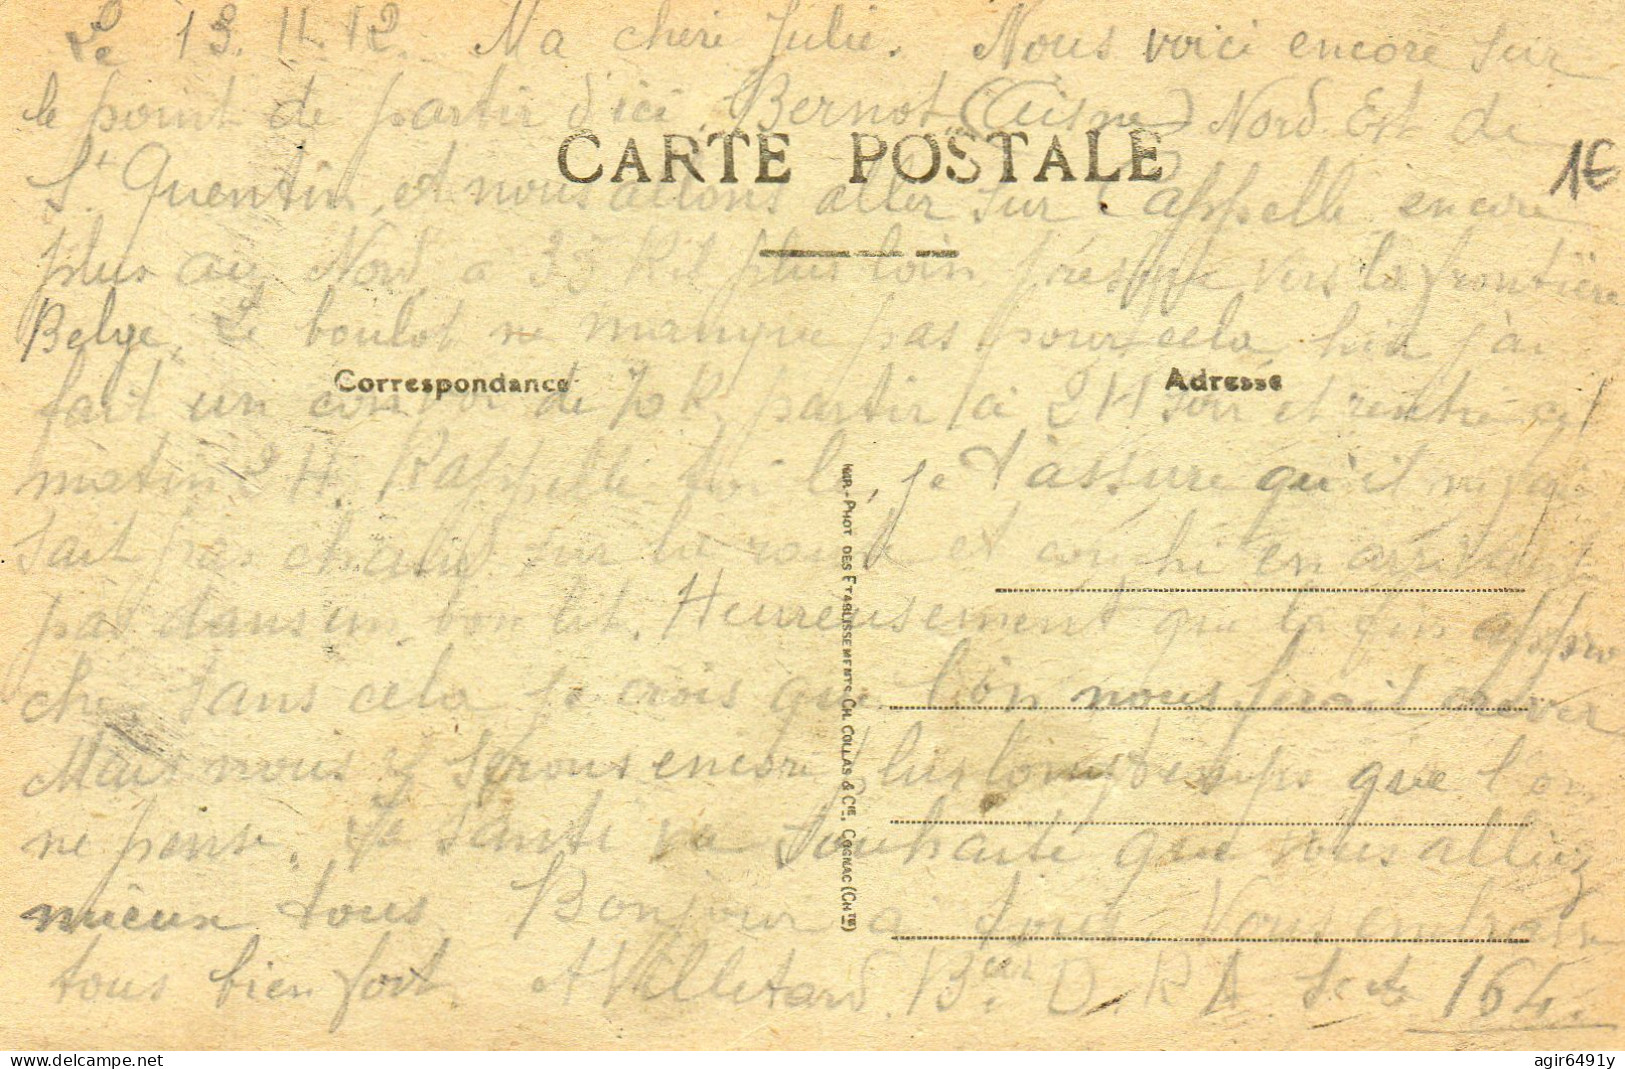 Le 13.11.18. Ma chère Julie. Nous voici encore sur
le point de partir d'ici Bernot (Aisne) Nord Est de
CARTE POSTALE
1€
St Quentin, et nous allons aller sur Cappelle encore
plus au Nord a 35 Kil plus loin presque vers la frontière
Belge, Le boulot ne manque pas pour cela, hier j'ai
Correspondance
Adresse
fait un convoi de 70 K, partir à 2 H soir et rentré ce
matin 2 H. Rappelle toi le, je t'assure qu'il ne
fait pas chaud sur la route et couché en arrivant
pas dans un bon lit. Heureusement que la fin appro
che sans cela je crois que l'on nous ferait crever
Mais nous y serons encore plus longtemps que l'on
ne pense. Ta santé va souhaite que vous alliez
mieux tous Bonjour a tous Vous embrasse
tous bien fort A Villetard Bier D. R A Scte 164.
IMP.-PHOT DES ETABLISSEMENTS CH. COLLAS & CIE, COGNAC (CHTE)
agir6491y